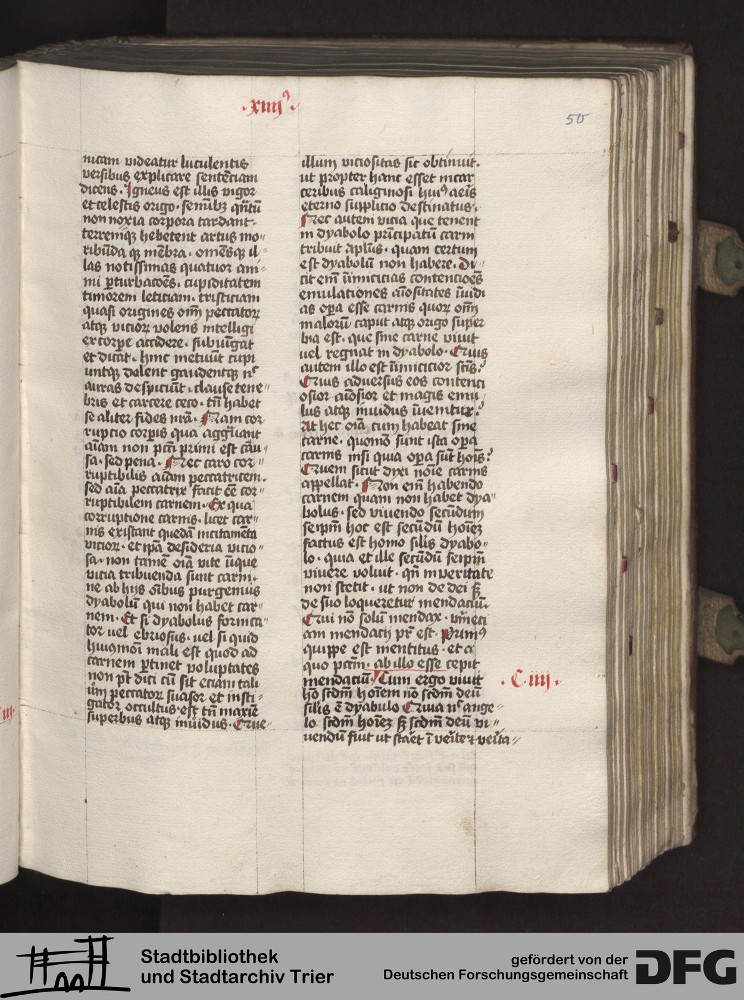 ·xiiij⁹·
50
nicam videatur luculentis
versibus explicare sentēciam
dicens· Igneus est illis vigor
et celestis origo· semībꝫ qn̄tū
non noxia corpora tardant·
terreniqꝫ hebetent artus mo
ribūda qꝫ mēbra· omēsqꝫ il
las notissimas quatuor ani
mi ꝑturbacōēs· cupiditatem
timorem leticiam· tristiciam
quasi origines om̄ peccatoꝝ
atqꝫ vicioꝝ volens intelligi
ex corpe accidere· subiūgat
et dicat· hinc metuūt cupi
untqꝫ dolent gaudentqꝫ nᶜ
auras despiciūt· clause tene
bris et carcere ceco· tn̄ habet
se aliter fides nr̄a· Nam cor
rupcio corpis que aggͣuant
aīam non pctī primi est cāu
sa· sed pena· Nec caro cor
ruptibilis aīam peccatricem·
sed aīa peccatrix facit eē cor
ruptibilem carnem· Ex qua
corruptione carnis· licet car
nis existant quedā incitamēta
vicioꝝ· et ip̄a desideria vicio
sa· non tamē oīa vite īiique
vicia tribuenda sunt carni·
ne ab hijs oībus purgemus
dyabolū qui non habet car
nem· Et si dyabolus fornica
tor vel ebriosus· vel si quid
huiusmōi mali est quod ad
carnem ꝑtinet voluptates
non pt̄ dici cū sit eciam tali
um peccatoꝝ suasor et insti
gator occultus· est tn̄ maxīe
superbus atqꝫ inuidus· Que
illum viciositas sic obtinuit·
ut propter hanc esset in car
ceribus caliginosi huiꝰ aeīs
eterno supplicio destinatus·
Nec autem vicia que tenent
in dyabolo prīcipatū carni
tribuit aplūs· quam certum
est dyabolū non habere· Di
cit em̄ inīmicicias contencioēs
emulationes aīositates īuidi
as oꝑa esse carnis quoꝝ om̄
maloꝝ caput atqꝫ origo super
bia est· que sine carne viuit
vel regnat in dyabolo· Quis
autem illo est inīmicicior scīs?
Quis aduersus eos contenci
osior aīosior et magis emu
lus atqꝫ inuidus īuenitur?
At hec oīa cum habeat sine
carne· quomō sunt ista oꝑa
carnis nisi quia oꝑa sūt hoīs?
Quem sicut dixi noīe carnis
appellat· Non em̄ habendo
carnem quam non habet dya
bolus· sed viuendo secūdum
seipm̄ hoc est secūdū hoīeꝫ
factus est homo silīs dyabo
lo· quia et ille secūdū seipm̄
viuere voluit· qn̄ in veritate
non stetit· ut non de dei sꝫ
de suo loqueretur mendaciū·
Qui nō solū mendax· vm̄eci
am mendacij pr̄ est· Primꝰ
quippe est mentitus· et a
quo pctm̄· ab illo esse cepit
mendaciū? Cum ergo viuit
hō scdm̄ hoīem nō scdm̄ deū
silīs ē dyabulo Quia nᶜ ange
lo scdm̄ hoīeꝫ sꝫ scdm̄ deū vi
uendū fuit ut staret ī veīte ⁊ veīta
·C· iiij·
Stadtbibliothek
und Stadtarchiv Trier
gefördert von der
Deutschen Forschungsgemeinschaft
DFG